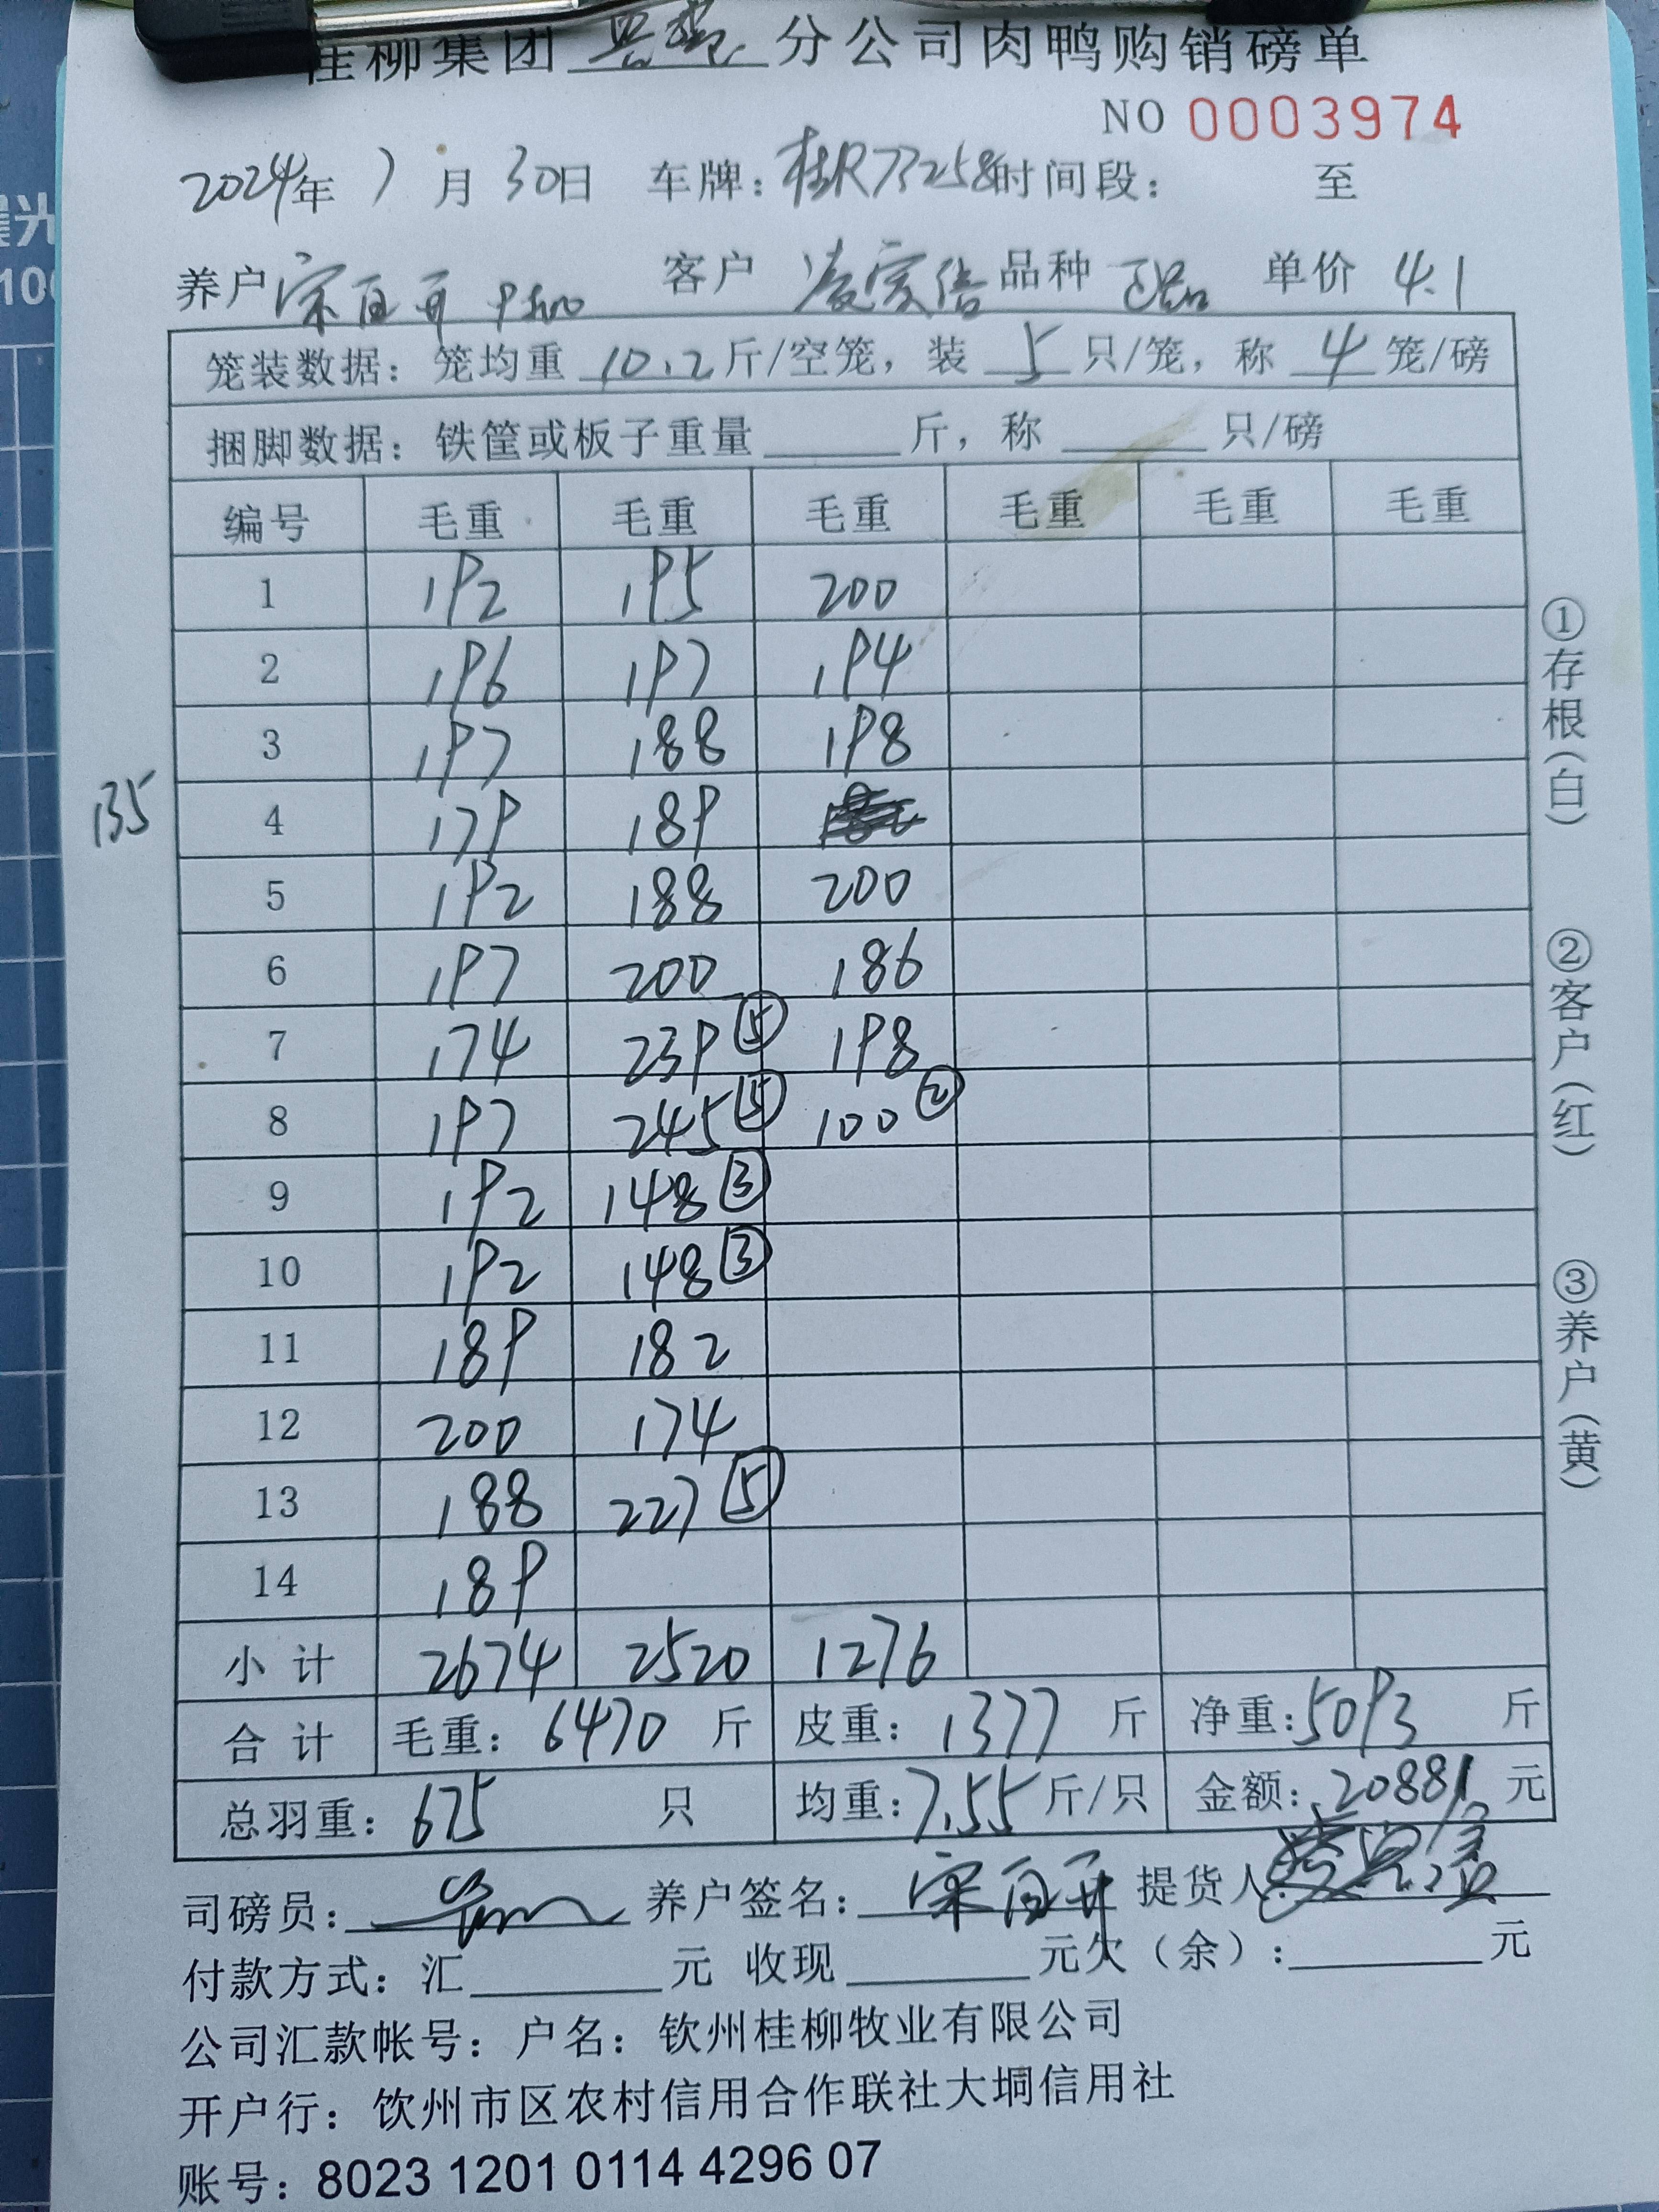 桂柳集团 分公司肉鸭购销磅单
NO 0003974
2024年 7月 30日 车牌：桂R73258 时间段： 至
养户 宋百开 客户 品种 单价 4.1
笼装数据：笼均重 10.2 斤/空笼，装 5 只/笼，称 4 笼/磅
捆脚数据：铁筐或板子重量 斤，称 只/磅
编号 毛重 毛重 毛重 毛重 毛重 毛重
1 192 195 200
2 196 197 194
3 197 188 198
135
4 179 189
5 192 188 200
6 197 200 186
7 174 239⑤ 198
8 197 245⑤ 100②
9 192 148③
10 192 148③
11 189 182
12 200 174
13 188 227⑤
14 189
小计 2674 2520 1276
合计 毛重：6470 斤 皮重：1377 斤 净重：5093 斤
总羽重：675 只 均重：7.55 斤/只 金额：20881 元
司磅员： 养户签名：宋百开 提货人：
付款方式：汇 元 收现 元欠（余）： 元
公司汇款帐号：户名：钦州桂柳牧业有限公司
开户行：钦州市区农村信用合作联社大垌信用社
账号：8023 1201 0114 4296 07
①存根（白） ②客户（红） ③养户（黄）
晨光